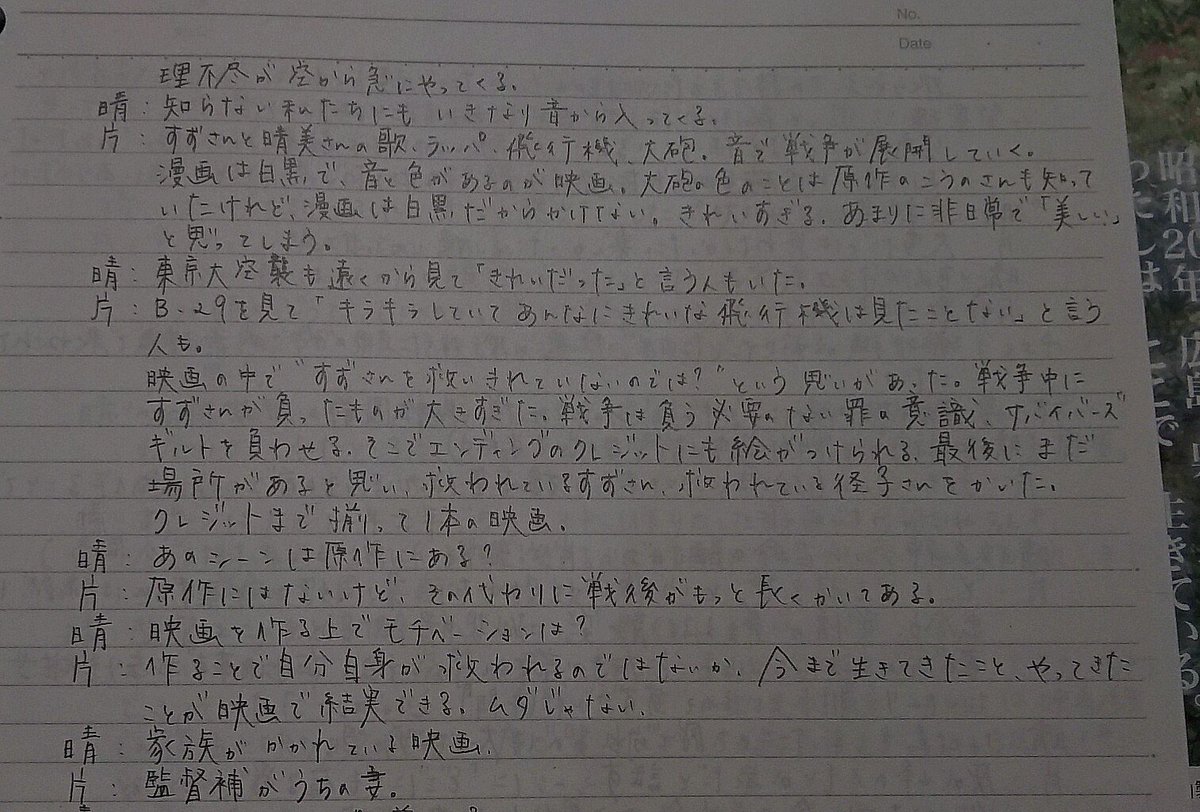 No.
Date
理不尽が空から急にやってくる。
晴：知らない私たちにも いきなり音から入ってくる。
片：すずさんと晴美さんの歌、ラッパ、飛行機、大砲。音で戦争が展開していく。
漫画は白黒で、音と色があるのが映画。大砲の色のことは原作のこうのさんも知って
いたけれど、漫画は白黒だからかけない。きれいすぎる。あまりに非日常で「美しい」
と思ってしまう。
晴：東京大空襲も遠くから見て「きれいだった」と言う人もいた。
片：B-29を見て「キラキラしていてあんなにきれいな飛行機は見たことない」と言う
人も。
映画の中で"すずさんを救いきれていないのでは?"という思いがあった。戦争中に
すずさんが負ったものが大きすぎた。戦争は負う必要のない罪の意識、サバイバーズ
ギルトを負わせる。そこでエンディングのクレジットにも絵がつけられる、最後にまだ
場所があると思い、救われているすずさん、救われている径子さんをかいた。
クレジットまで揃って1本の映画。
晴：あのシーンは原作にある?
片：原作にはないけど、その代わりに戦後がもっと長くかいてある。
晴：映画を作る上でモチベーションは?
片：作ることで自分自身が救われるのではないか。今まで生きてきたこと、やってきた
ことが映画で結実できる。ムダじゃない。
晴：家族がかかれている映画。
片：監督補がうちの妻。
昭和20年、広島
わたしは ここで 生きている。